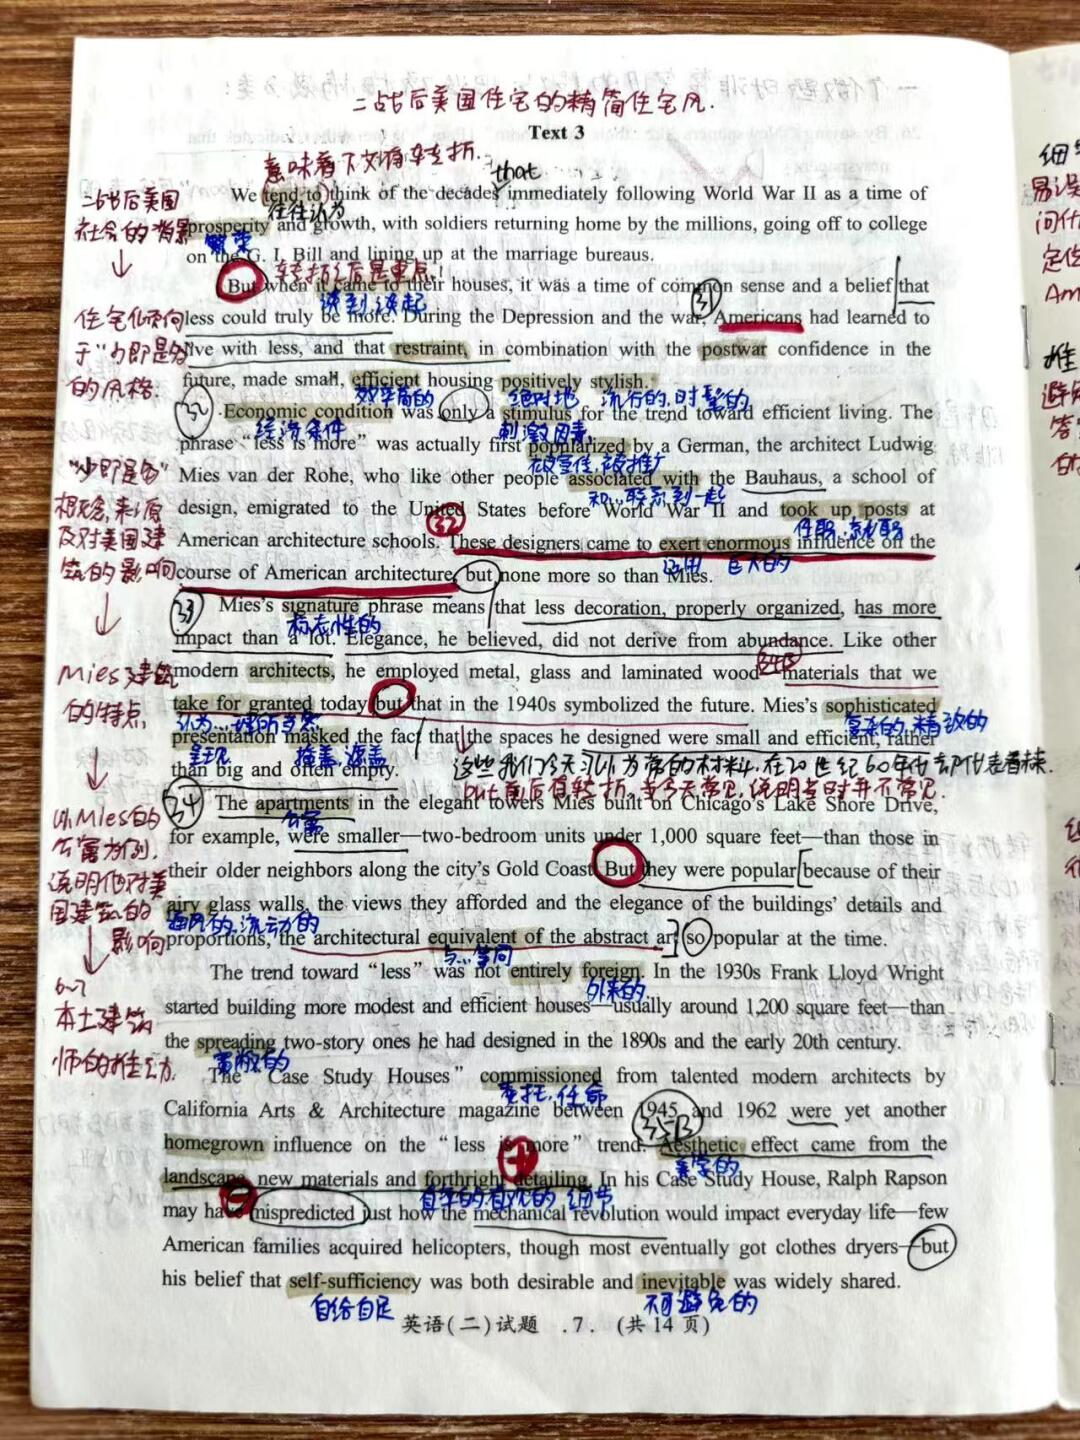 二战后美国住宅的精简住宅风.
Text 3
意味着下文有转折.
that
We tend to think of the decades immediately following World War II as a time of
往往认为
prosperity and growth, with soldiers returning home by the millions, going off to college
繁荣
on the G. I. Bill and lining up at the marriage bureaus.
转折之后是重点!
But when it came to their houses, it was a time of common sense and a belief that
谈到谈起
31
less could truly be more. During the Depression and the war, Americans had learned to
live with less, and that restraint, in combination with the postwar confidence in the
future, made small, efficient housing positively stylish.
效率高的 绝对地 流行的,时髦的
32
Economic condition was only a stimulus for the trend toward efficient living. The
经济条件 刺激因素,
phrase “less is more” was actually first popularized by a German, the architect Ludwig
被宣传,被推广
Mies van der Rohe, who like other people associated with the Bauhaus, a school of
和...联系到一起
design, emigrated to the United States before World War II and took up posts at
32 任职,就职
American architecture schools. These designers came to exert enormous influence on the
运用 巨大的
course of American architecture, but none more so than Mies.
33
Mies’s signature phrase means that less decoration, properly organized, has more
标志性的
impact than a lot. Elegance, he believed, did not derive from abundance. Like other
modern architects, he employed metal, glass and laminated wood—materials that we
34B
take for granted today but that in the 1940s symbolized the future. Mies’s sophisticated
认为...理所当然 复杂的,精致的
presentation masked the fact that the spaces he designed were small and efficient, rather
呈现 掩盖,遮盖
than big and often empty.
这些我们今天习以为常的材料,在20世纪60年代却代表着未来.
but前后有转折,当今天常见,说明当时并不常见.
34
The apartments in the elegant towers Mies built on Chicago’s Lake Shore Drive,
公寓
for example, were smaller—two-bedroom units under 1,000 square feet—than those in
their older neighbors along the city’s Gold Coast. But they were popular because of their
airy glass walls, the views they afforded and the elegance of the buildings’ details and
通风的,流动的
proportions, the architectural equivalent of the abstract art so popular at the time.
与...等同
The trend toward “less” was not entirely foreign. In the 1930s Frank Lloyd Wright
外来的
started building more modest and efficient houses—usually around 1,200 square feet—than
the spreading two-story ones he had designed in the 1890s and the early 20th century.
宽敞的
The “Case Study Houses” commissioned from talented modern architects by
委托,任命
California Arts & Architecture magazine between 1945 and 1962 were yet another
35B
homegrown influence on the “less is more” trend. Aesthetic effect came from the
美学的
landscape, new materials and forthright detailing. In his Case Study House, Ralph Rapson
直率的,直观的 细节
may have mispredicted just how the mechanical revolution would impact everyday life—few
American families acquired helicopters, though most eventually got clothes dryers—but
his belief that self-sufficiency was both desirable and inevitable was widely shared.
自给自足 不可避免的
英语(二)试题 .7. (共14页)
二战后美国
社会的背景
住宅倾向
于“少即是多”
的风格.
“少即是多”
概念,来源
及对美国建
筑的影响
Mies建筑
的特点,
以Mies的
公寓为例,
说明他对美
国建筑的
影响
6~7
本土建筑
师的推动.
细
易误
问什
定位
Am
推
避免
答